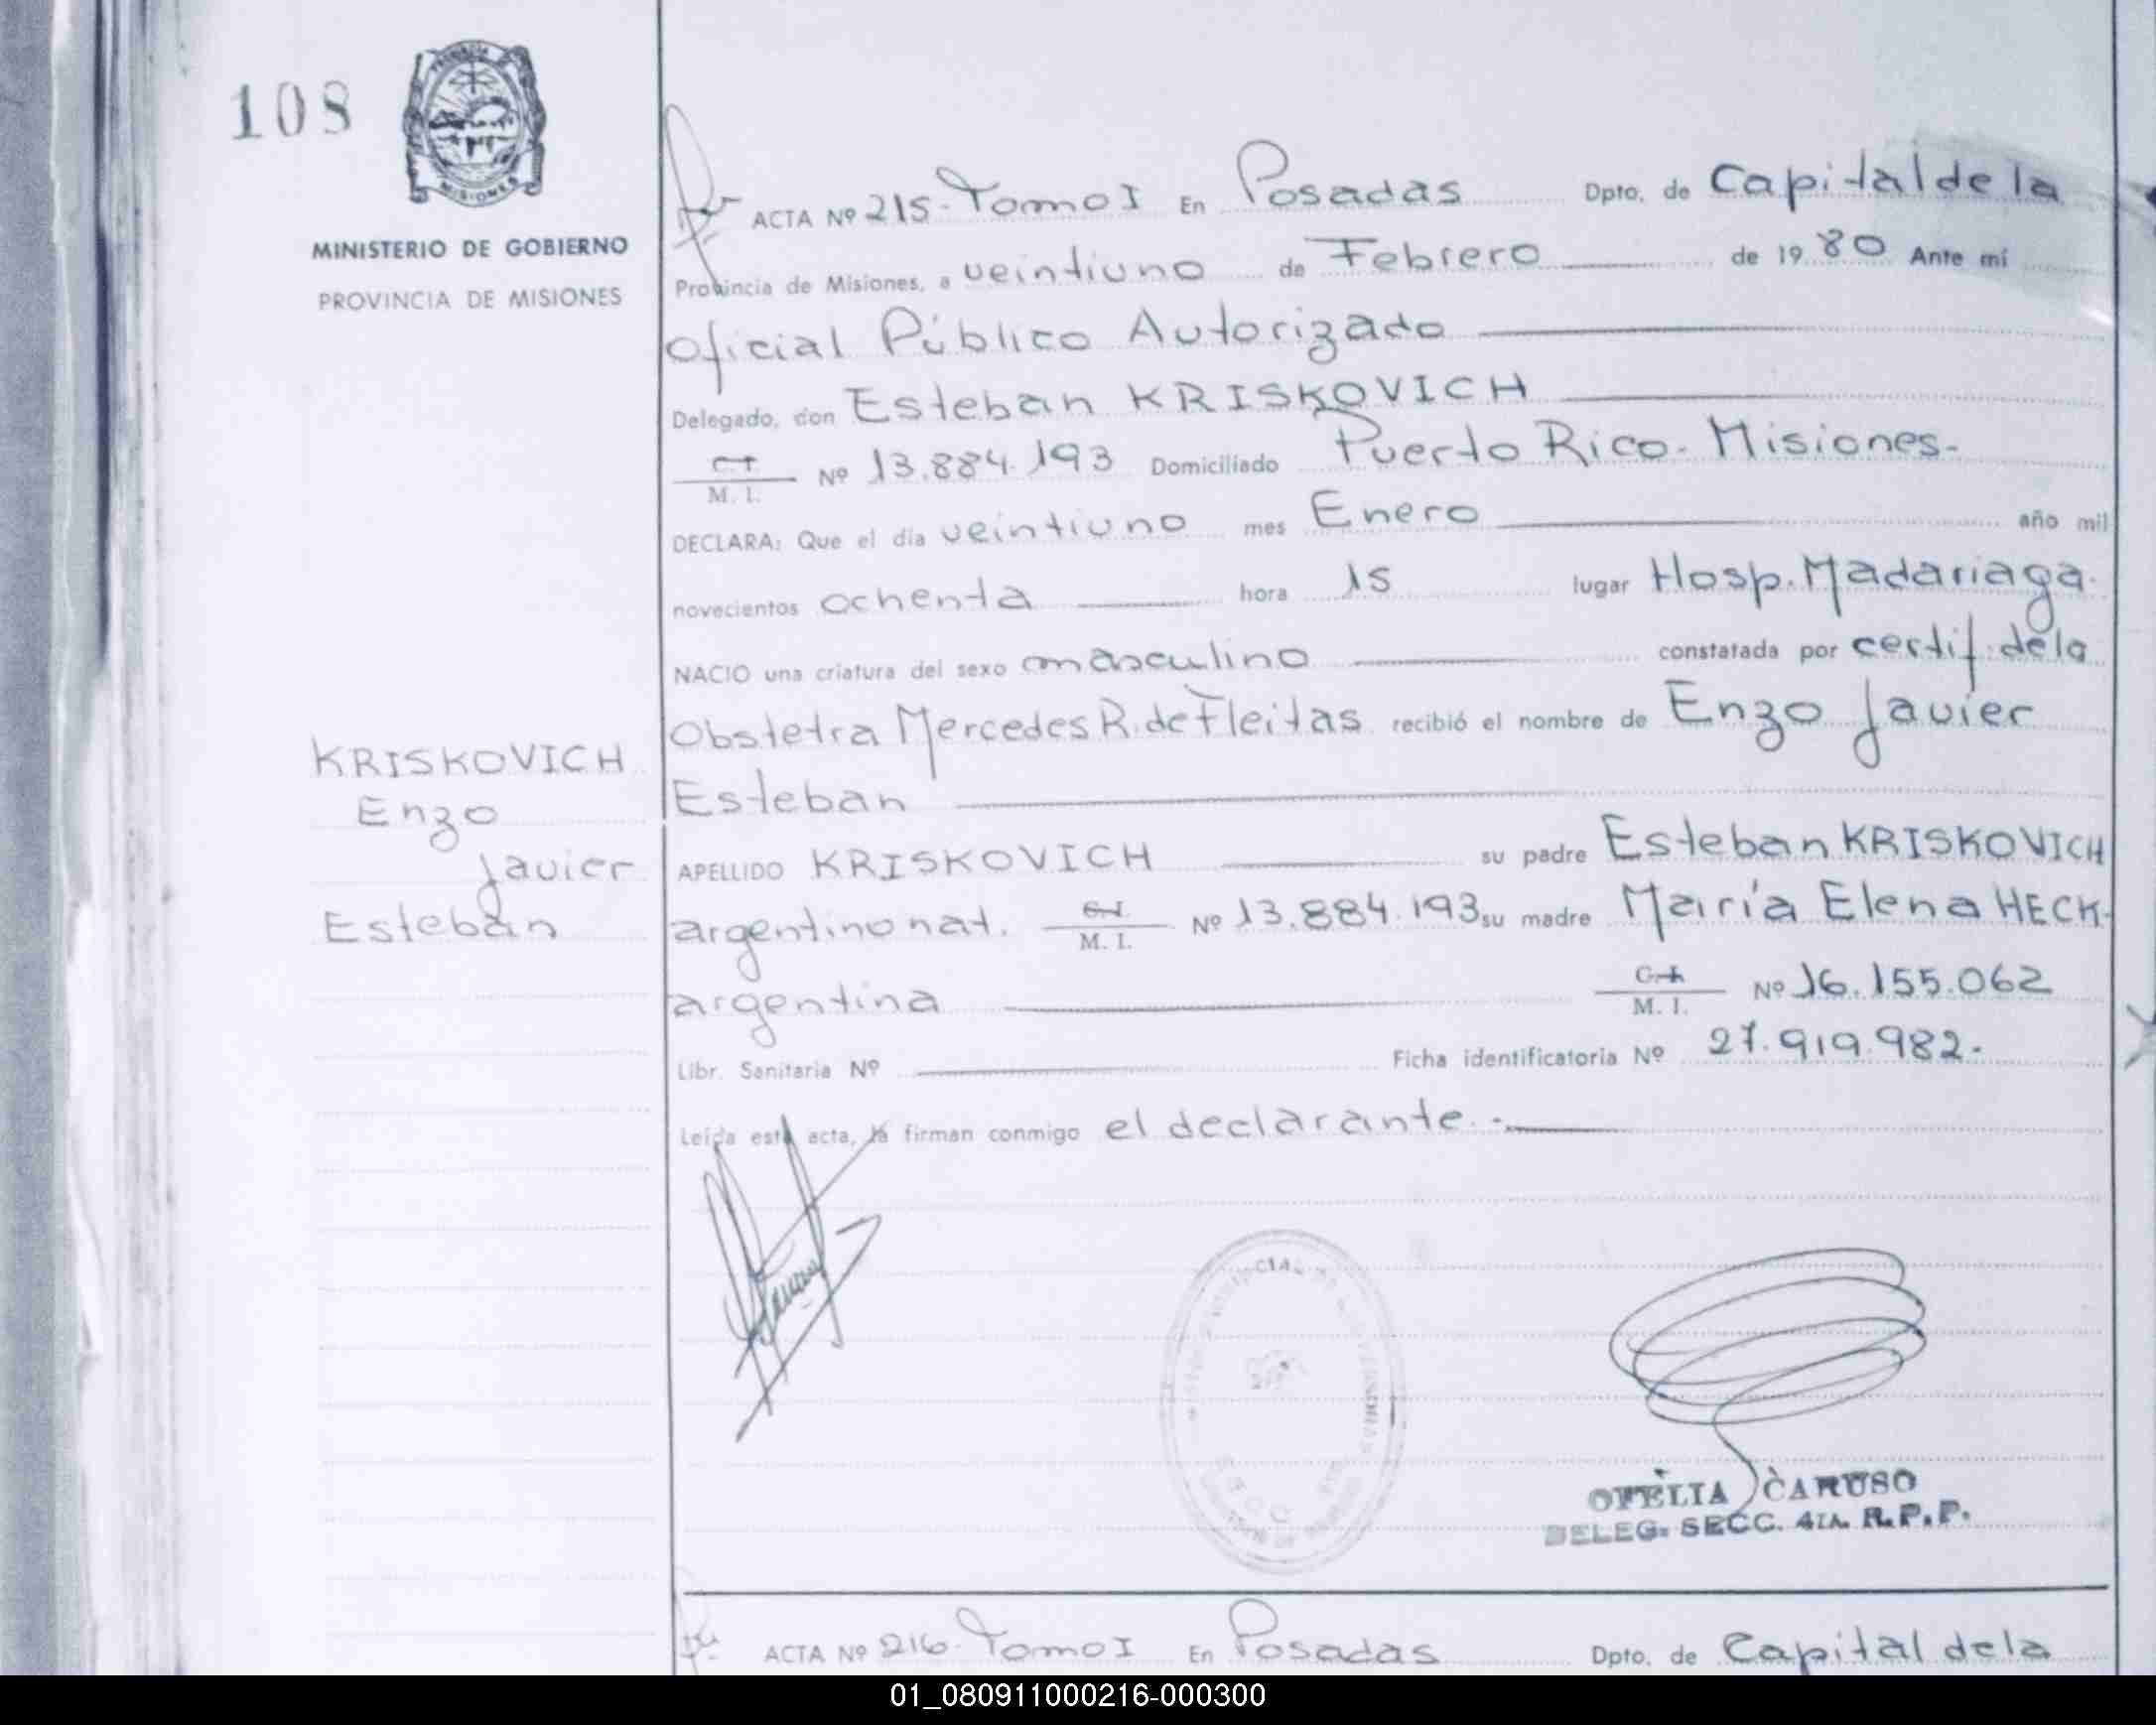 108
PROVINCIA
MISIONES
MINISTERIO DE GOBIERNO
PROVINCIA DE MISIONES
ACTA Nº 215 - Tomo I En Posadas Dpto. de Capital de la
Provincia de Misiones, a veintiuno de Febrero de 1980 Ante mí
Oficial Público Autorizado
Delegado, don Esteban KRISKOVICH
C.I. / M. I. Nº 13.884.193 Domiciliado Puerto Rico - Misiones -
DECLARA: Que el día veintiuno mes Enero año mil
novecientos ochenta hora 15 lugar Hosp. Madariaga.
NACIO una criatura del sexo masculino constatada por certif. de la
Obstetra Mercedes R. de Fleitas recibió el nombre de Enzo Javier
Esteban
KRISKOVICH
Enzo
Javier
Esteban
APELLIDO KRISKOVICH su padre Esteban KRISKOVICH
argentino nat. C.I. / M. I. Nº 13.884.193 su madre María Elena HECK-
argentina C.I. / M. I. Nº 16.155.062
Libr. Sanitaria Nº Ficha identificatoria Nº 27.919.982.-
Leída esta acta, la firman conmigo el declarante.-
OFELIA CARUSO
DELEG. SECC. 4TA. R.P.P.
ACTA Nº 216 - Tomo I En Posadas Dpto. de Capital de la
01_080911000216-000300